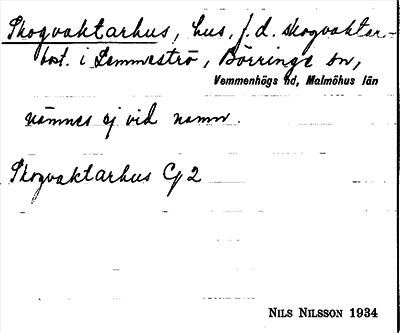 Skogvaktarhus, hus, f.d. skogvaktar-
bost. i Lemmeströ, Börringe sn,
Vemmenhögs hd, Malmöhus län
nämnes ej vid namn.
Skogvaktarhus Gj 2
NILS NILSSON 1934